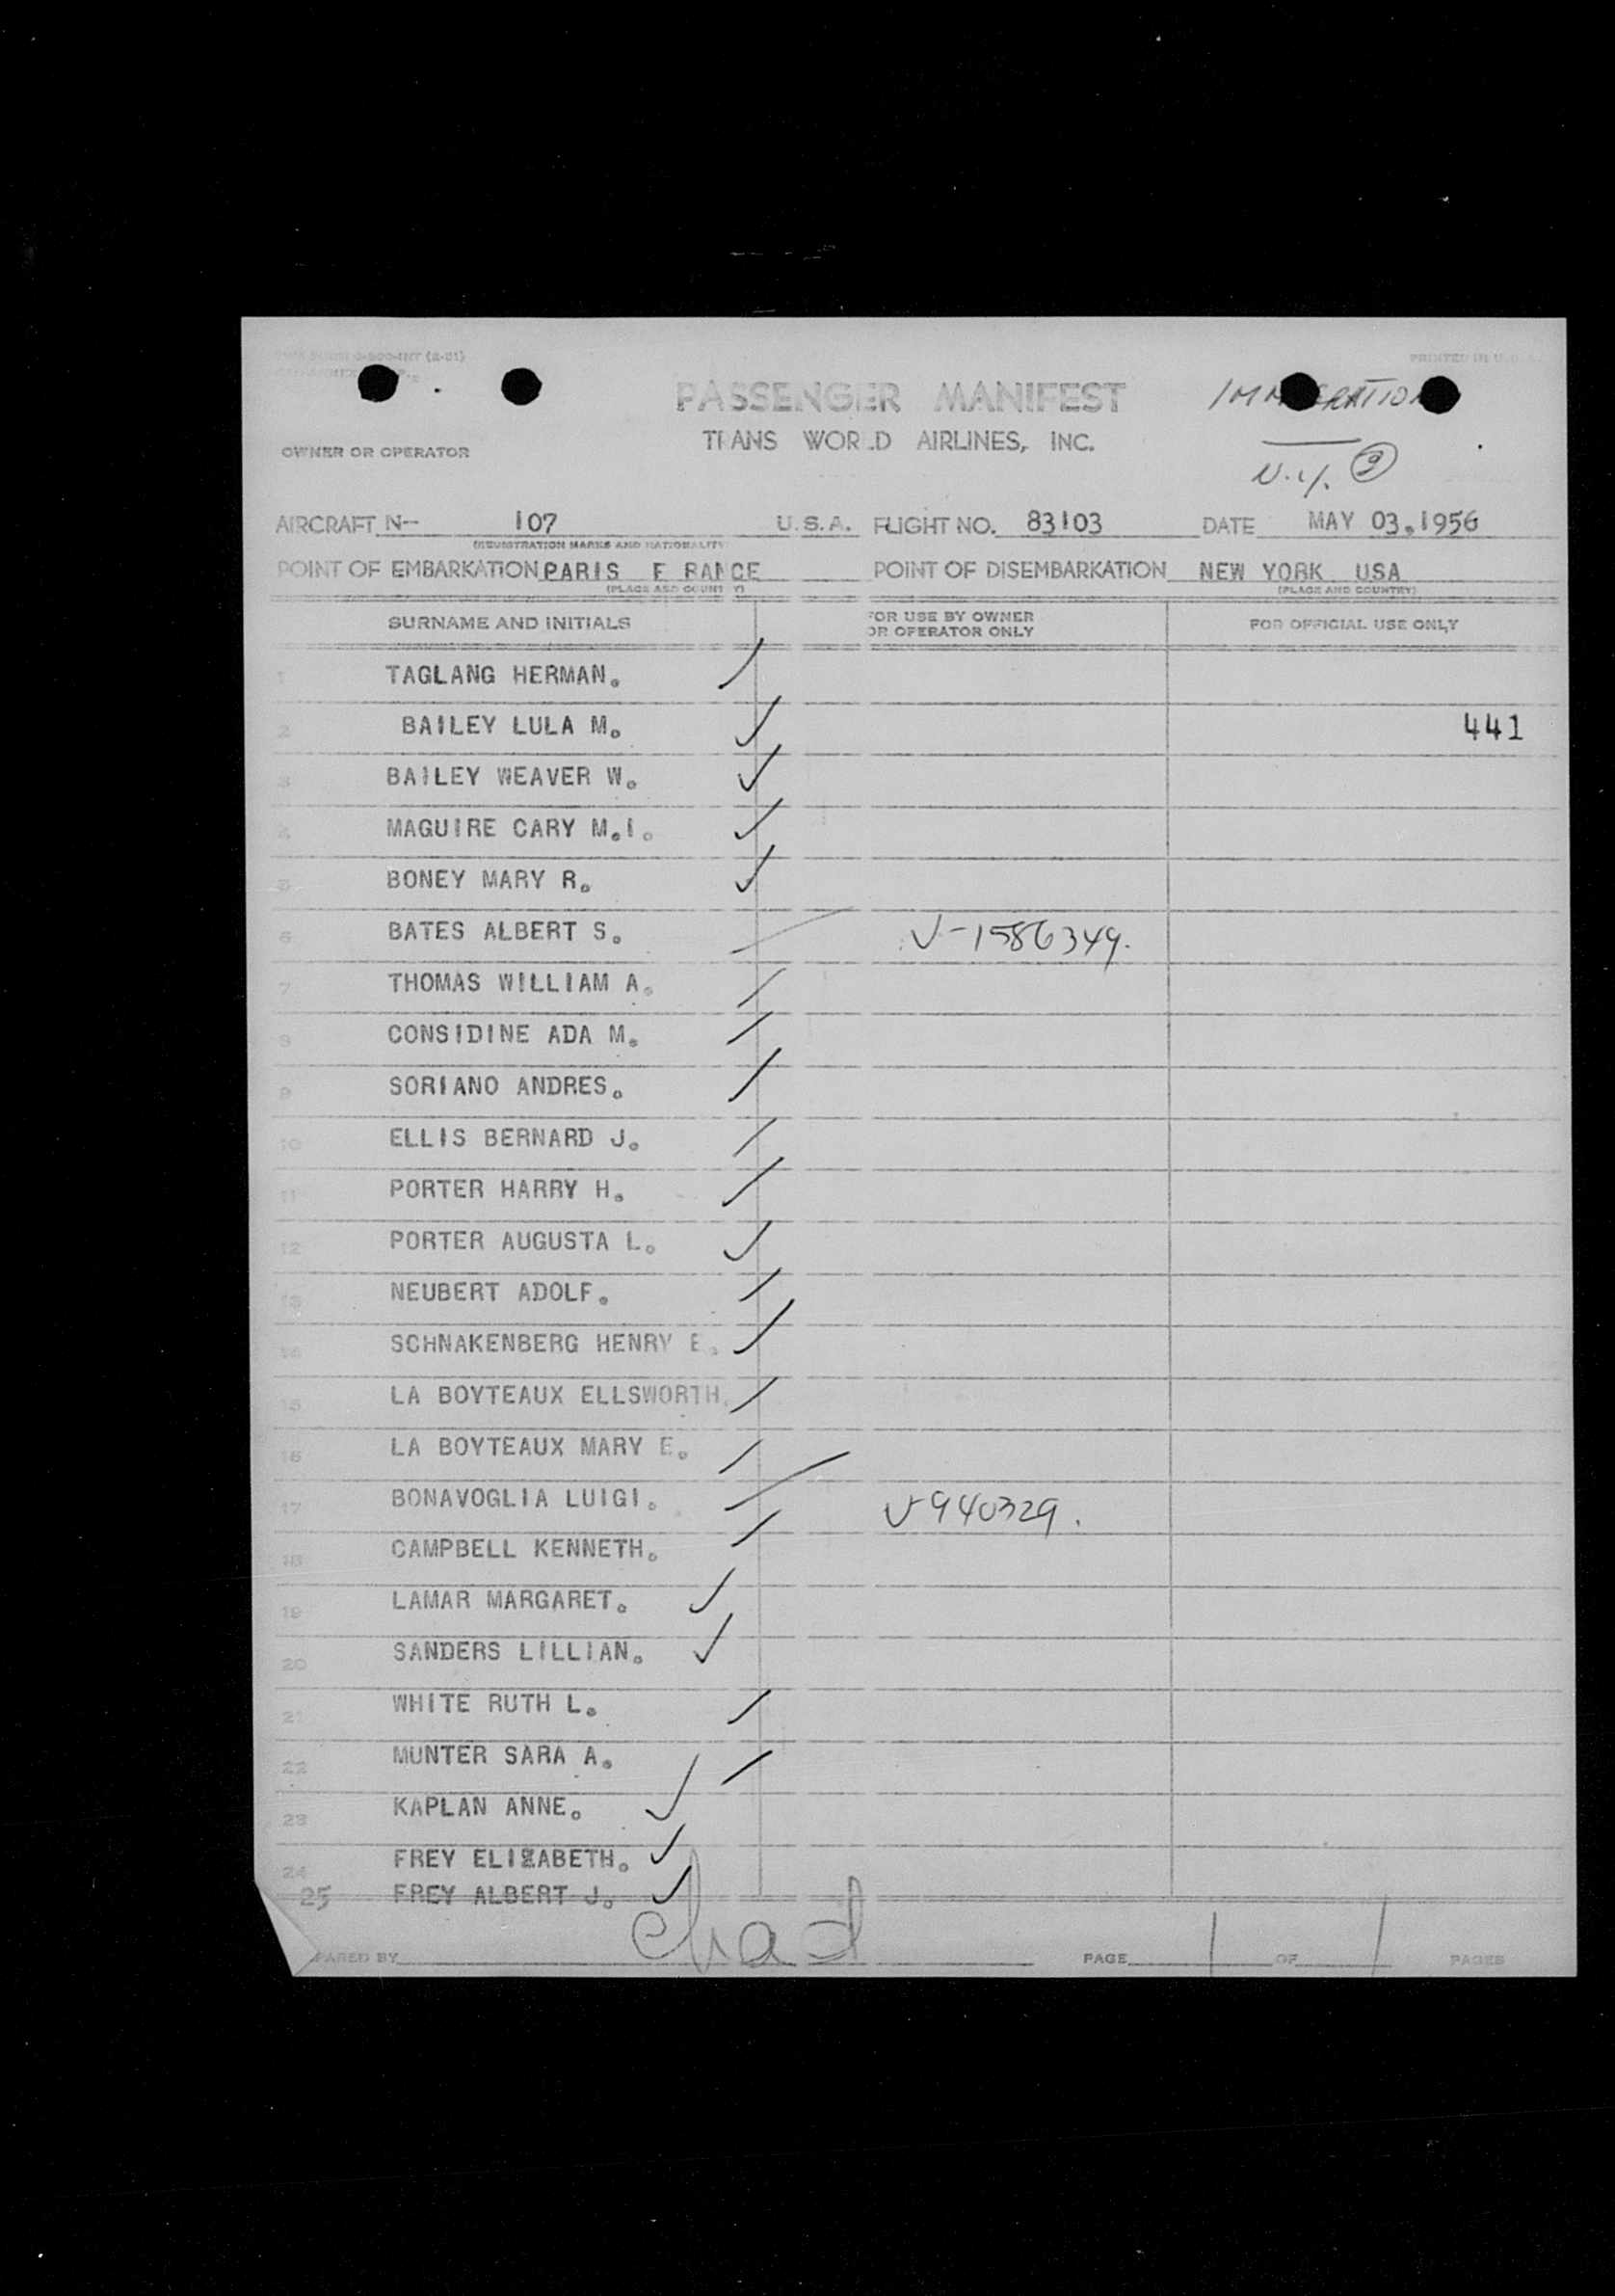 PRINTED IN U.S.A.
PASSENGER MANIFEST
IMMIGRATION
TRANS WORLD AIRLINES, INC.
OWNER OR OPERATOR
N.Y. 2
AIRCRAFT N-- 107 U.S.A. FLIGHT NO. 83103 DATE MAY 03.1956
(REGISTRATION MARKS AND NATIONALITY
POINT OF EMBARKATION PARIS F RANCE POINT OF DISEMBARKATION NEW YORK USA
(PLACE AND COUNTRY) (PLACE AND COUNTRY)
SURNAME AND INITIALS FOR USE BY OWNER OR OPERATOR ONLY FOR OFFICIAL USE ONLY
1 TAGLANG HERMAN.
2 BAILEY LULA M. 441
3 BAILEY WEAVER W.
4 MAGUIRE CARY M.I.
5 BONEY MARY R.
6 BATES ALBERT S. V-1586349.
7 THOMAS WILLIAM A.
8 CONSIDINE ADA M.
9 SORIANO ANDRES.
10 ELLIS BERNARD J.
11 PORTER HARRY H.
12 PORTER AUGUSTA L.
13 NEUBERT ADOLF.
14 SCHNAKENBERG HENRY E.
15 LA BOYTEAUX ELLSWORTH.
16 LA BOYTEAUX MARY E.
17 BONAVOGLIA LUIGI. V-940329.
18 CAMPBELL KENNETH.
19 LAMAR MARGARET.
20 SANDERS LILLIAN.
21 WHITE RUTH L.
22 MUNTER SARA A.
23 KAPLAN ANNE.
24 FREY ELIZABETH.
25 FREY ALBERT J.
PARED BY Chad PAGE 1 OF 1 PAGES